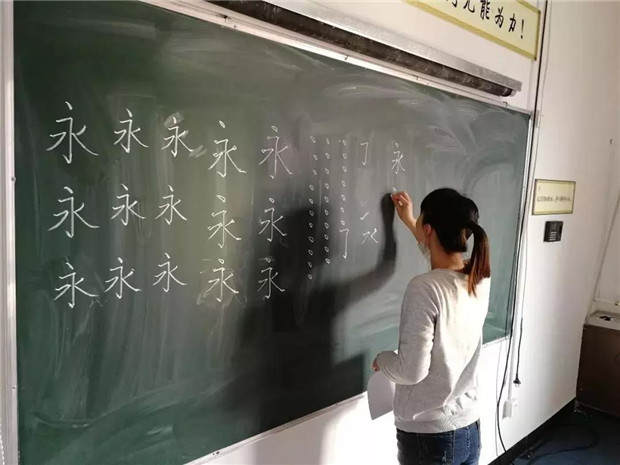 无能为力!
永 永 永 永 永 永
永 永 永 永 永
永 永 永 永 永